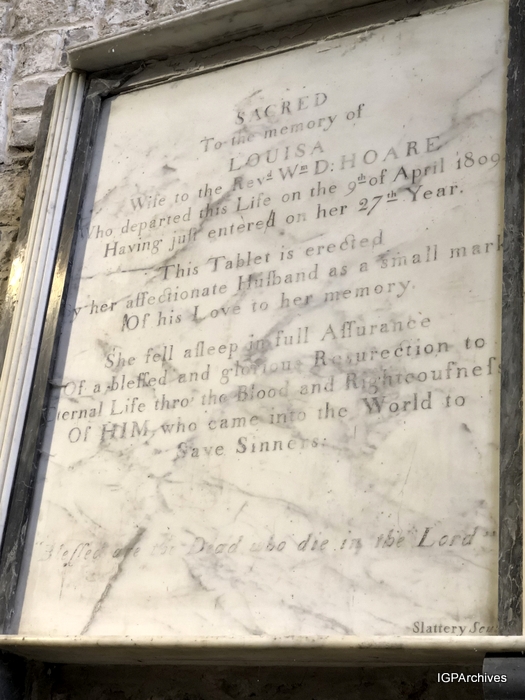 SACRED
To the memory of
LOUISA
Wife to the Revᵈ Wᵐ D: HOARE
Who departed this Life on the 9ᵗʰ of April 1809
Having juſt entered on her 27ᵗʰ Year.
This Tablet is erected
y her affectionate Huſband as a small mark
Of his Love to her memory.
She fell aſleep in full Aſſurance
Of a bleſſed and glorious Resurection to
ternal Life thro' the Blood and Righteouſneſs
Of HIM, who came into the World to
Save Sinners:
"Bleſſed are the Dead who die in the Lord"
Slattery Scu
IGPArchives